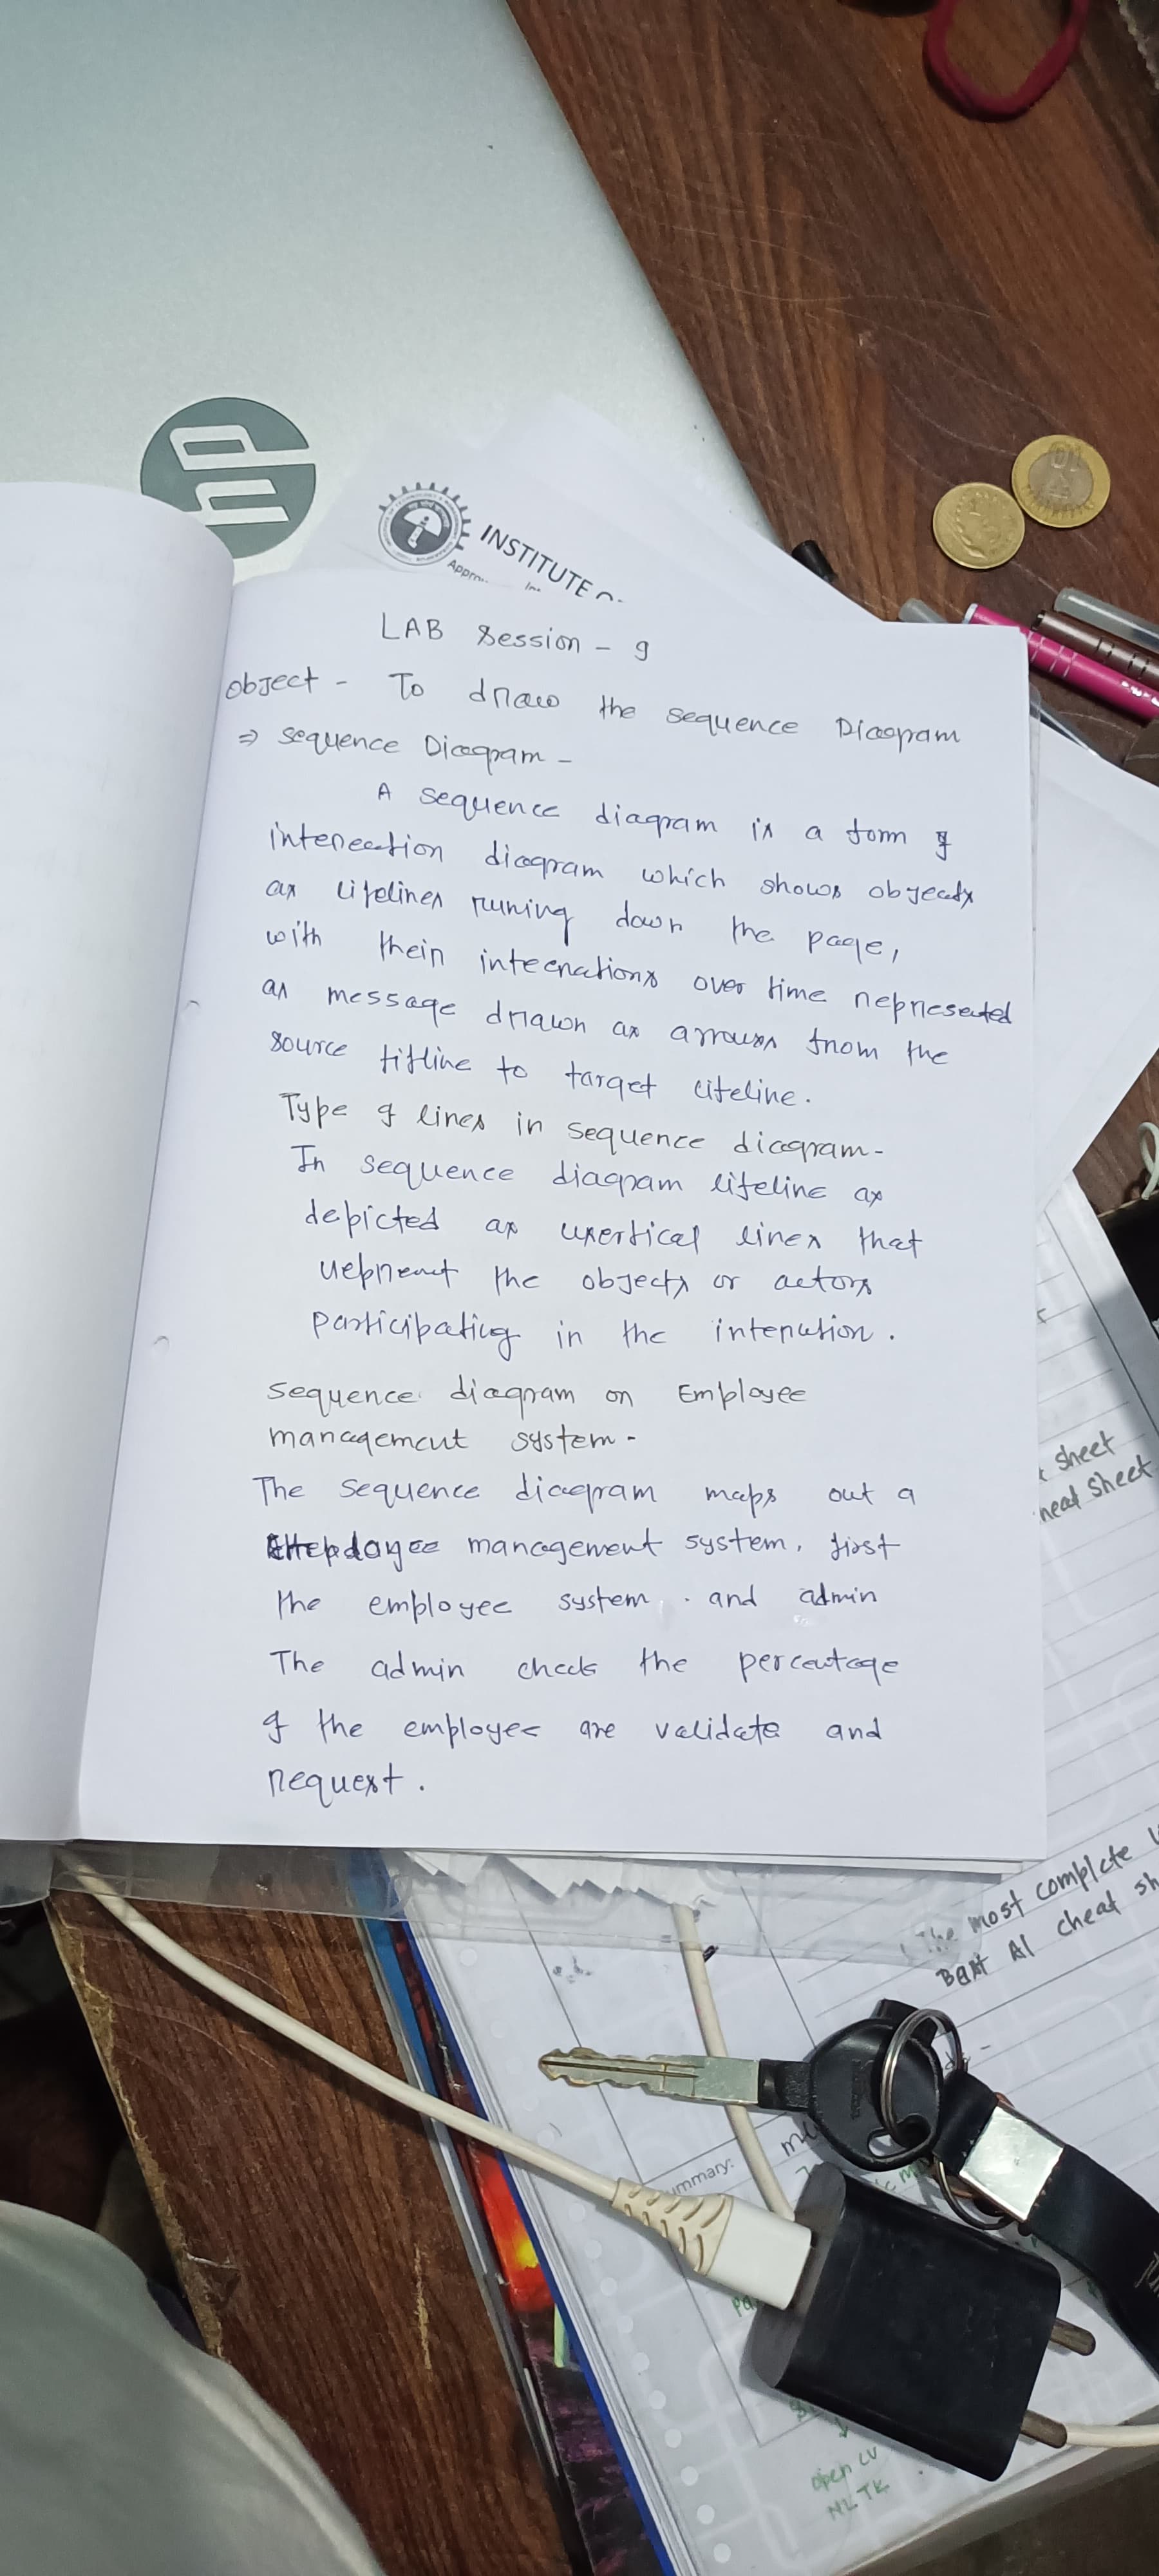 hp
INSTITUTE
LAB Session - 9
Object - To draw the sequence Diagram
⇒ sequence Diagram -
A sequence diagram is a form of
interection diagram which shows objects
as lifelines runing down the page,
with their interenations over time represented
as message drawn as arrows from the
source lifline to target lifeline.
Type of lines in sequence diagram-
In sequence diagram lifeline as
depicted as vertical lines that
the objects or actors
participating in the
sequence diagram on Employee
management system -
The sequence diagram maps out a
management system, first
the employee system. and admin
The admin check the percentage
of the employee are validate and
request.
sheet
Sheet
The most complete
Best AI cheat sh
ummary:
open CV
NLTK